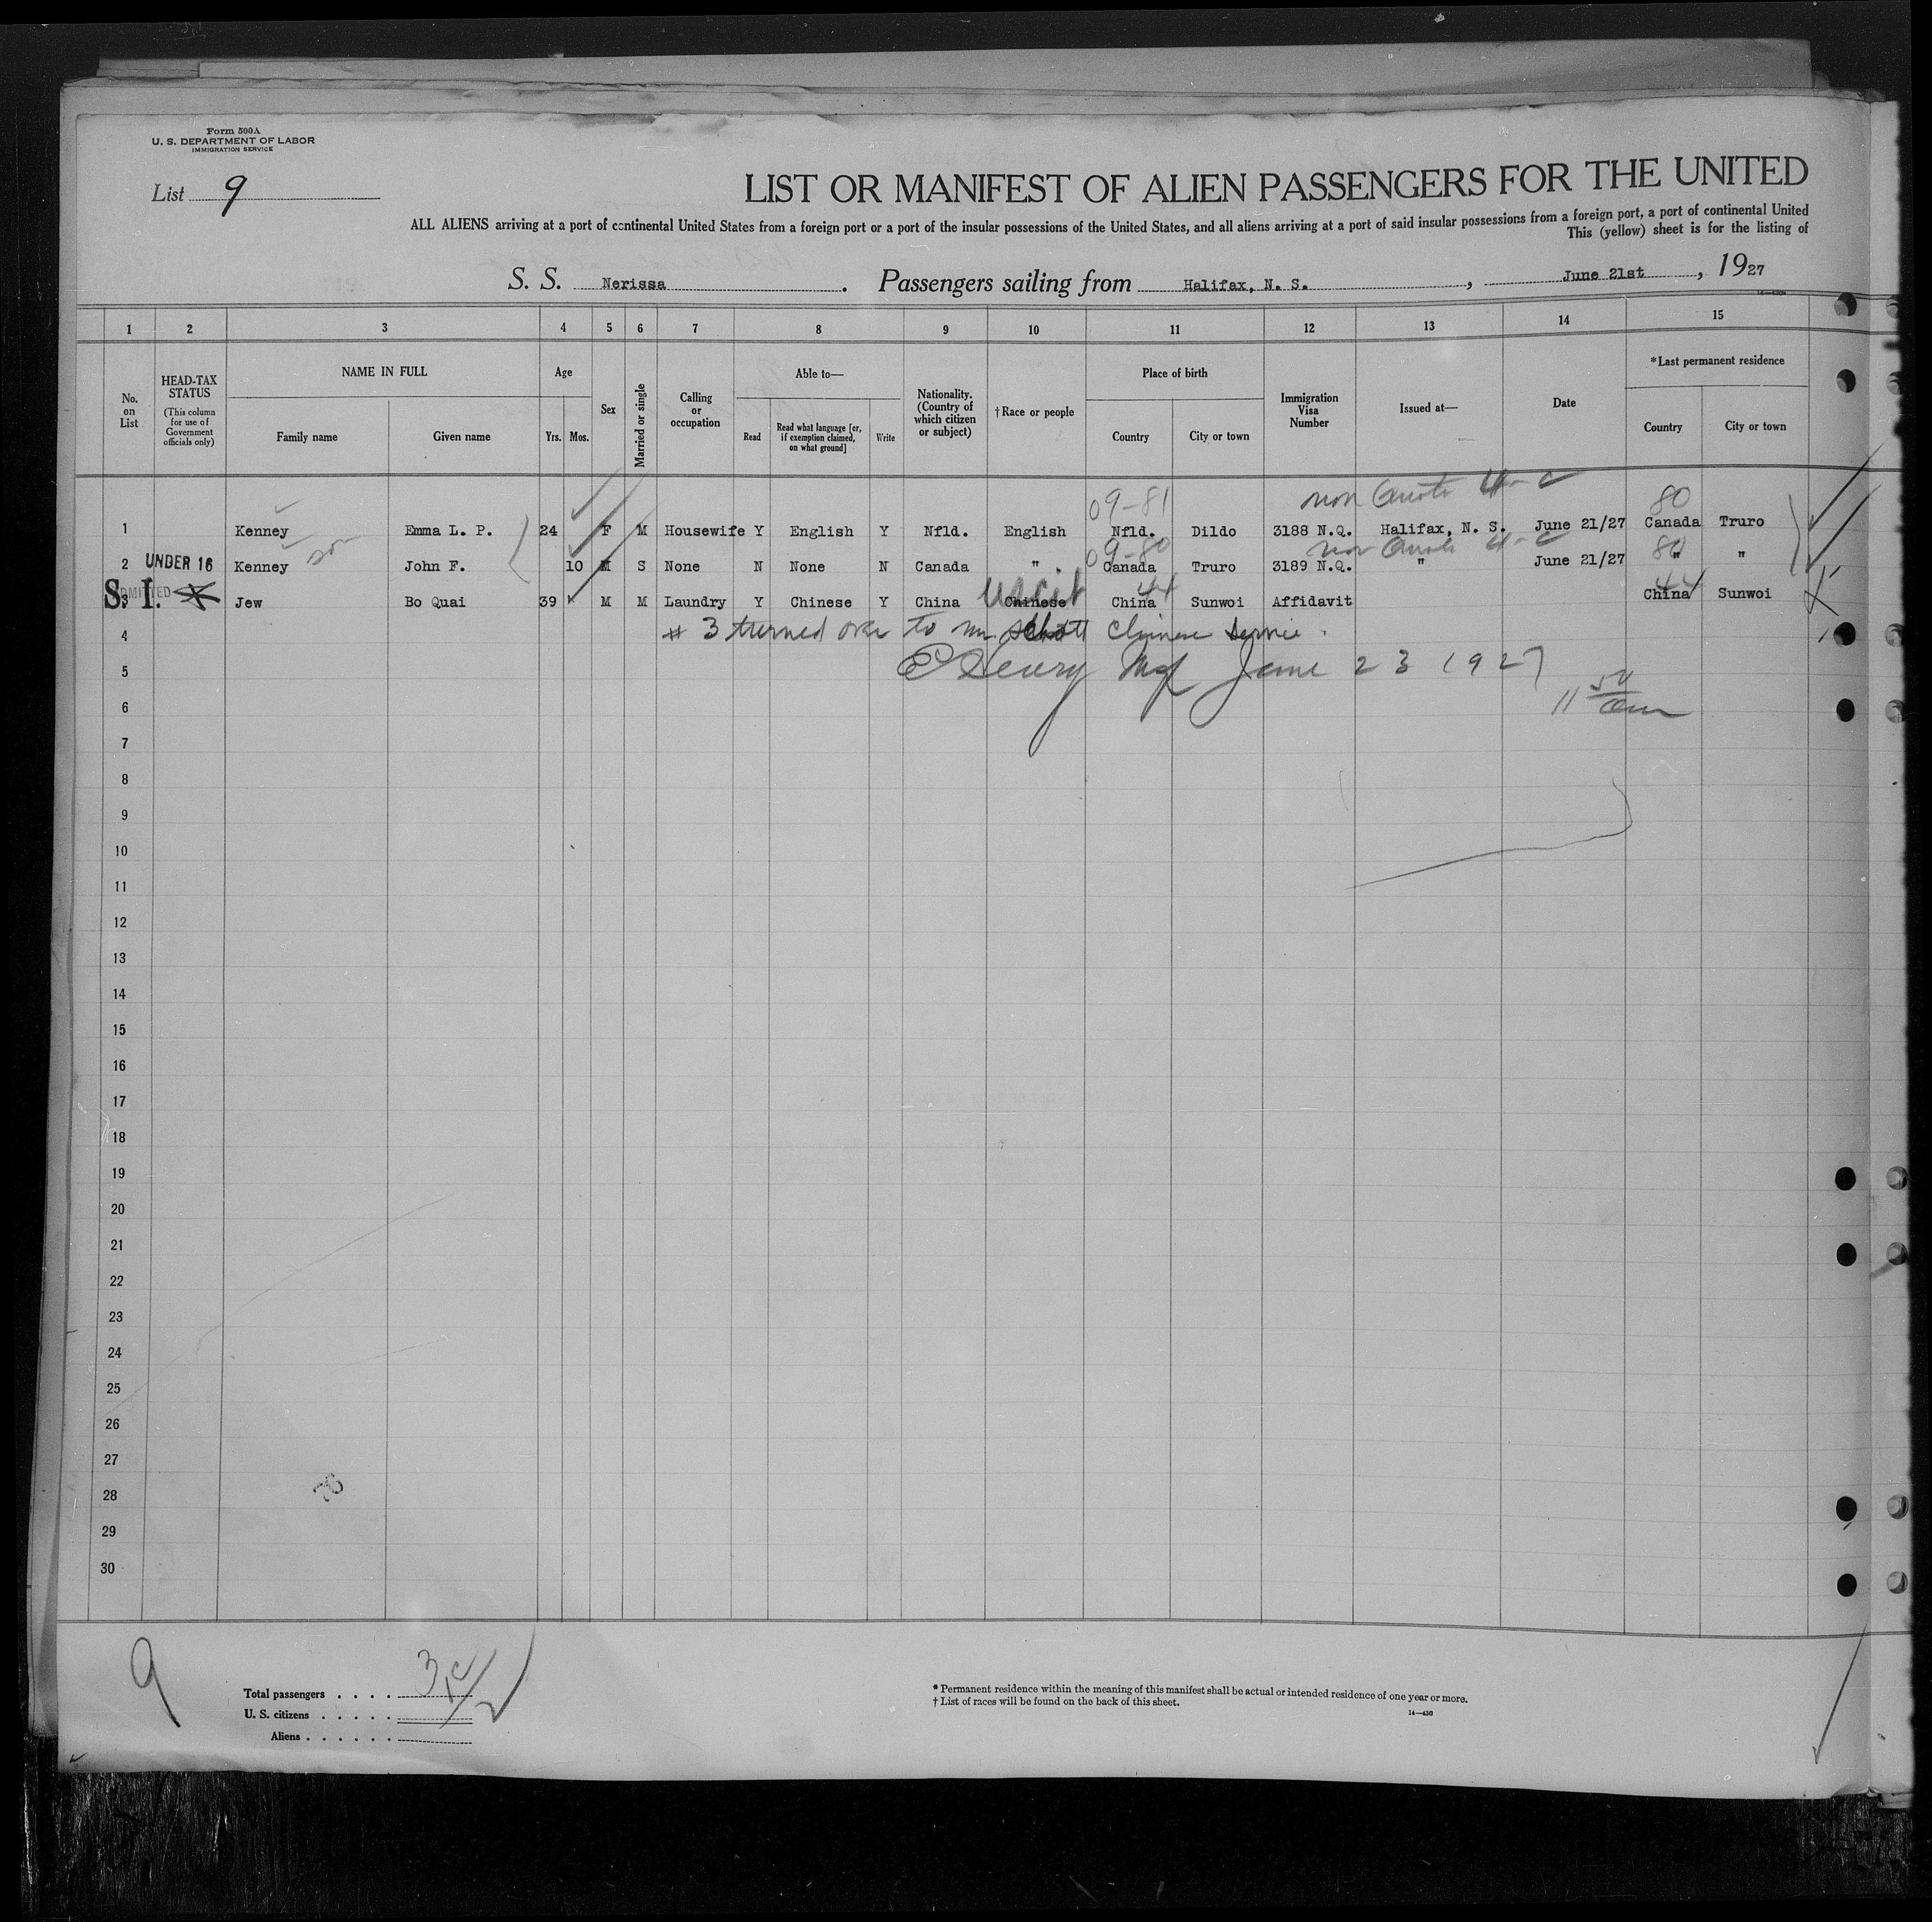 Form 500A
U. S. DEPARTMENT OF LABOR
IMMIGRATION SERVICE
List 9
LIST OR MANIFEST OF ALIEN PASSENGERS FOR THE UNITED
ALL ALIENS arriving at a port of continental United States from a foreign port or a port of the insular possessions of the United States, and all aliens arriving at a port of said insular possessions from a foreign port, a port of continental United
This (yellow) sheet is for the listing of
S. S. Nerissa. Passengers sailing from Halifax, N. S., June 21st, 1927
1 2 3 4 5 6 7 8 9 10 11 12 13 14 15
No. on List
HEAD-TAX STATUS
(This column for use of Government officials only)
NAME IN FULL
Family name Given name
Age
Yrs. Mos.
Sex
Married or single
Calling or occupation
Able to—
Read
Read what language [or, if exemption claimed, on what ground]
Write
Nationality. (Country of which citizen or subject)
†Race or people
Place of birth
Country City or town
Immigration Visa Number
Issued at—
Date
*Last permanent residence
Country City or town
09-81 non Quota 4-c 80
1 Kenney Emma L. P. 24 F M Housewife Y English Y Nfld. English Nfld. Dildo 3188 N.Q. Halifax, N. S. June 21/27 Canada Truro
son 09-80 non Quota 4-c 80
2 UNDER 16 Kenney John F. 10 M S None N None N Canada " Canada Truro 3189 N.Q. " June 21/27 " "
S. I. ADMITTED US Cit 44 44
3 Jew Bo Quai 39 M M Laundry Y Chinese Y China Chinese China Sunwoi Affidavit China Sunwoi
4 # 3 turned over to Mr Schott Chinese Service.
5 June 23 1927
6 11 50 am
7
8
9
10
11
12
13
14
15
16
17
18
19
20
21
22
23
24
25
26
27
28
29
30
9
Total passengers . . . . 3
U. S. citizens . . . . .
Aliens . . . . . .
* Permanent residence within the meaning of this manifest shall be actual or intended residence of one year or more.
† List of races will be found on the back of this sheet.
14—430